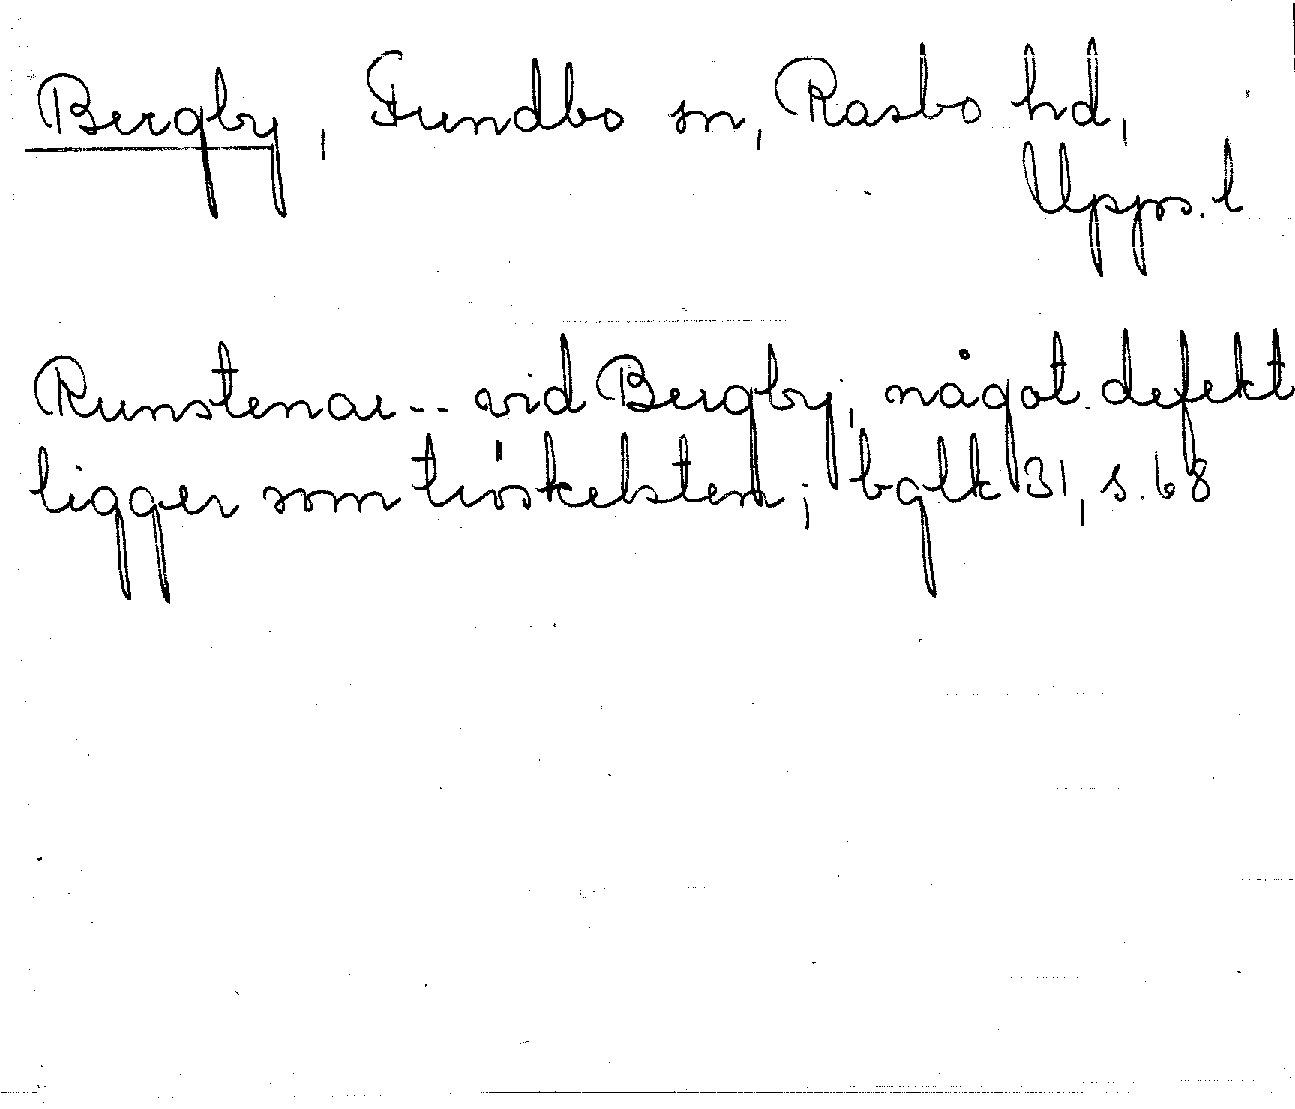 Bergby, Funbo sn, Rasbo hd,
Upps. l
Runstenar -- vid Bergby, något defekt
ligger som tröskelsten; bglk 31, s. 68